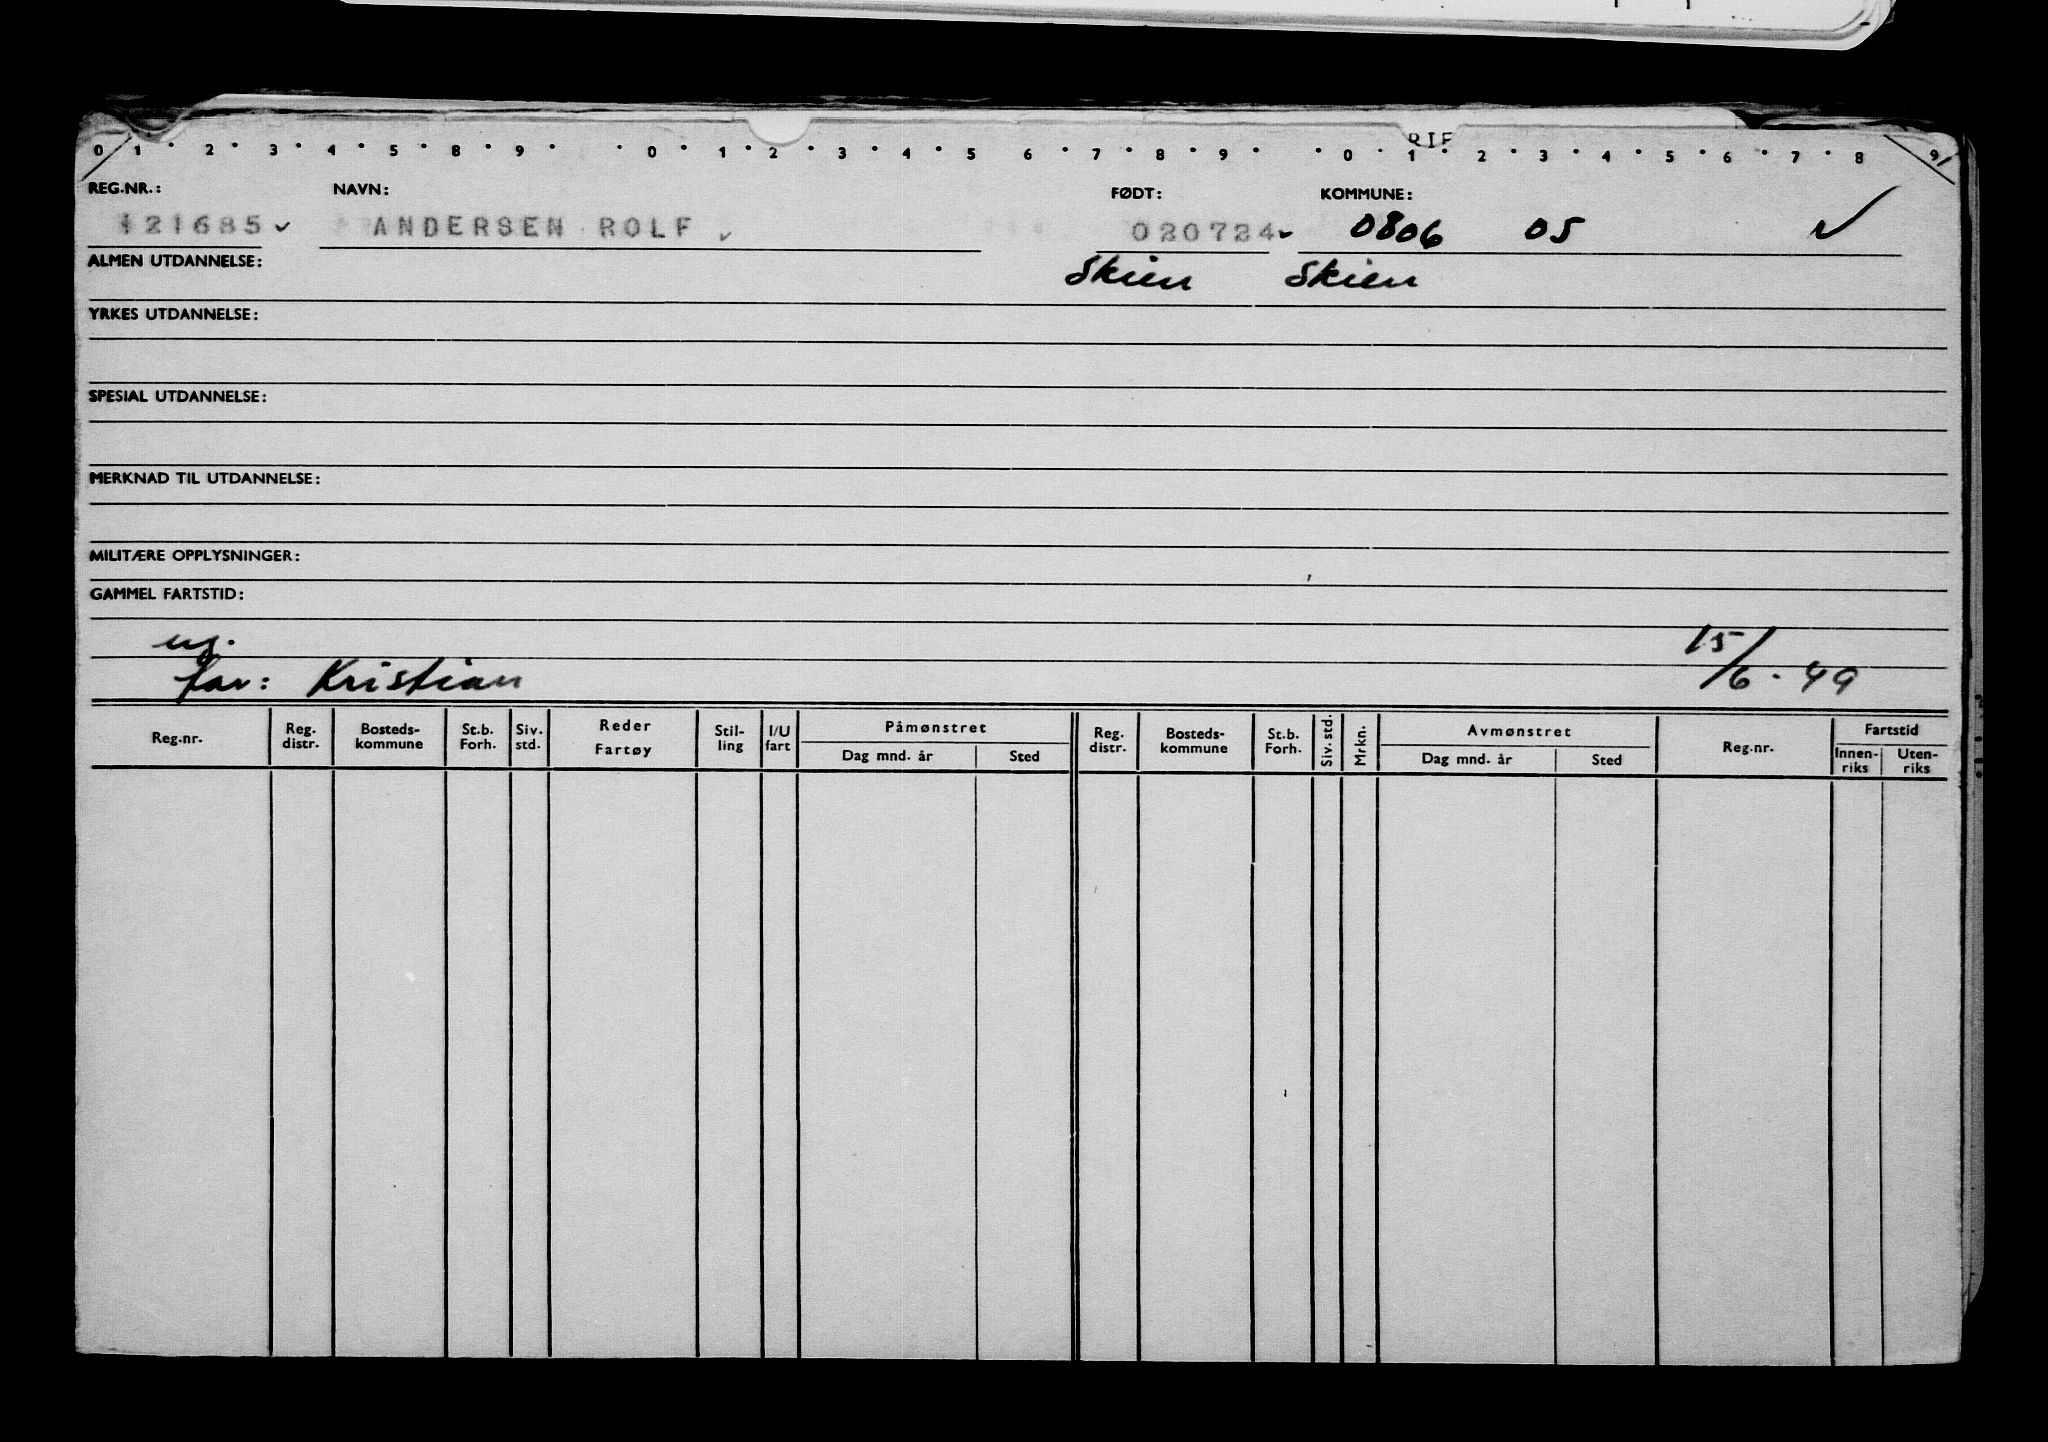 0 1 2 3 4 5 8 9 0 1 2 3 4 5 6 7 8 9 0 1 2 3 4 5 6 7 8 9
REG.NR.: NAVN: FØDT: KOMMUNE:
121685 ANDERSEN ROLF 020724 0806 05
ALMEN UTDANNELSE: Skien Skien
YRKES UTDANNELSE:
SPESIAL UTDANNELSE:
MERKNAD TIL UTDANNELSE:
MILITÆRE OPPLYSNINGER:
GAMMEL FARTSTID:
ug.
far: Kristian 15/6-49
Reg.nr. Reg. distr. Bosteds-kommune St.b. Forh. Siv. std. Reder Fartøy Stil-ling I/U fart Påmønstret Dag mnd. år Sted Reg. distr. Bosteds-kommune St.b. Forh. Siv. std. Mrkn. Avmønstret Dag mnd. år Sted Reg.nr. Fartstid Innen-riks Uten-riks